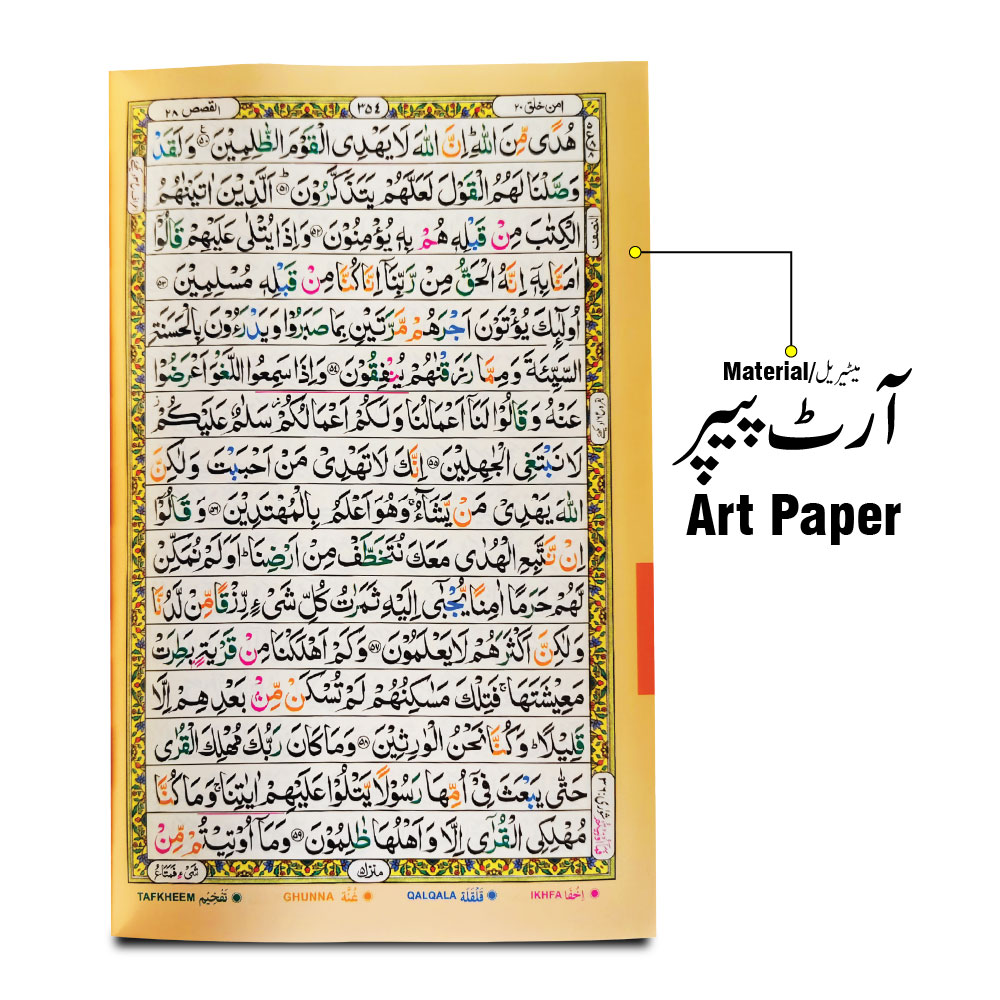 القصص ٢٨
٣٥٤
امن خلق ٢٠
هُدًى مِّنَ اللّٰهِ ؕ اِنَّ اللّٰهَ لَا یَهْدِی الْقَوْمَ الظّٰلِمِیْنَ ﴿۵۰﴾ وَ لَقَدْ
وَصَّلْنَا لَهُمُ الْقَوْلَ لَعَلَّهُمْ یَتَذَكَّرُوْنَ ﴿۵۱﴾ اَلَّذِیْنَ اٰتَیْنٰهُمُ
الْكِتٰبَ مِنْ قَبْلِهٖ هُمْ بِهٖ یُؤْمِنُوْنَ ﴿۵۲﴾ وَ اِذَا یُتْلٰى عَلَیْهِمْ قَالُوْۤا
النصف
اٰمَنَّا بِهٖۤ اِنَّهُ الْحَقُّ مِنْ رَّبِّنَاۤ اِنَّا كُنَّا مِنْ قَبْلِهٖ مُسْلِمِیْنَ ﴿۵۳﴾
اُولٰٓىِٕكَ یُؤْتَوْنَ اَجْرَهُمْ مَّرَّتَیْنِ بِمَا صَبَرُوْا وَ یَدْرَءُوْنَ بِالْحَسَنَةِ
السَّیِّئَةَ وَ مِمَّا رَزَقْنٰهُمْ یُنْفِقُوْنَ ﴿۵۴﴾ وَ اِذَا سَمِعُوا اللَّغْوَ اَعْرَضُوْا
عَنْهُ وَ قَالُوْا لَنَاۤ اَعْمَالُنَا وَ لَكُمْ اَعْمَالُكُمْ ؗ سَلٰمٌ عَلَیْكُمْ ؗ
لَا نَبْتَغِی الْجٰهِلِیْنَ ﴿۵۵﴾ اِنَّكَ لَا تَهْدِیْ مَنْ اَحْبَبْتَ وَ لٰكِنَّ
اللّٰهَ یَهْدِیْ مَنْ یَّشَآءُ ۚ وَ هُوَ اَعْلَمُ بِالْمُهْتَدِیْنَ ﴿۵۶﴾ وَ قَالُوْۤا
اِنْ نَّتَّبِعِ الْهُدٰى مَعَكَ نُتَخَطَّفْ مِنْ اَرْضِنَا ؕ اَوَ لَمْ نُمَكِّنْ
لَّهُمْ حَرَمًا اٰمِنًا یُّجْبٰۤى اِلَیْهِ ثَمَرٰتُ كُلِّ شَیْءٍ رِّزْقًا مِّنْ لَّدُنَّا
وَ لٰكِنَّ اَكْثَرَهُمْ لَا یَعْلَمُوْنَ ﴿۵۷﴾ وَ كَمْ اَهْلَكْنَا مِنْ قَرْیَةٍۭ بَطِرَتْ
مَعِیْشَتَهَا ۚ فَتِلْكَ مَسٰكِنُهُمْ لَمْ تُسْكَنْ مِّنْۢ بَعْدِهِمْ اِلَّا
قَلِیْلًا ؕ وَ كُنَّا نَحْنُ الْوٰرِثِیْنَ ﴿۵۸﴾ وَ مَا كَانَ رَبُّكَ مُهْلِكَ الْقُرٰى
حَتّٰى یَبْعَثَ فِیْۤ اُمِّهَا رَسُوْلًا یَّتْلُوْا عَلَیْهِمْ اٰیٰتِنَا ۚ وَ مَا كُنَّا
مُهْلِكِی الْقُرٰۤى اِلَّا وَ اَهْلُهَا ظٰلِمُوْنَ ﴿۵۹﴾ وَ مَاۤ اُوْتِیْتُمْ مِّنْ
منزل ۵
شَیْءٍ فَمَتَاعُ
TAFKHEEM تَفْخِیْم
GHUNNA غُنَّه
QALQALA قَلْقَلَة
IKHFA اِخْفَا
Material/میٹیریل
آرٹ پیپر
Art Paper